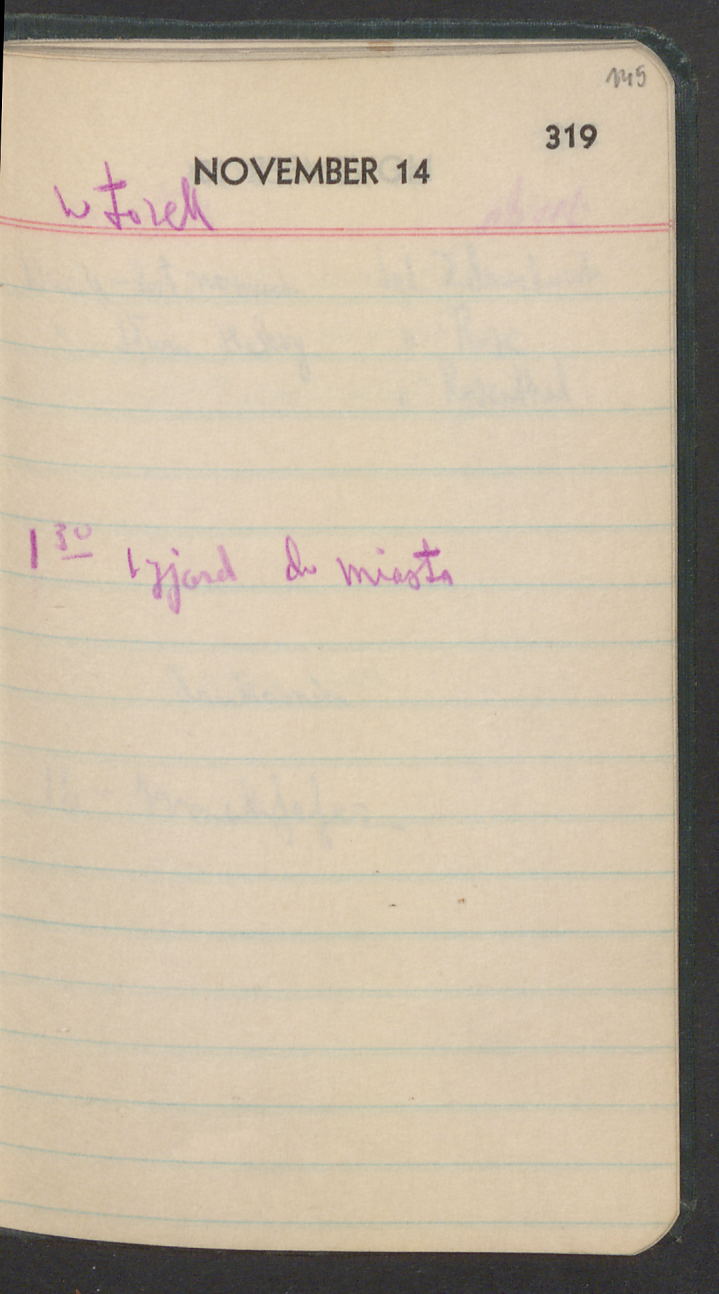 145
319
NOVEMBER 14
wtorek
1 30 wyjazd do miasta